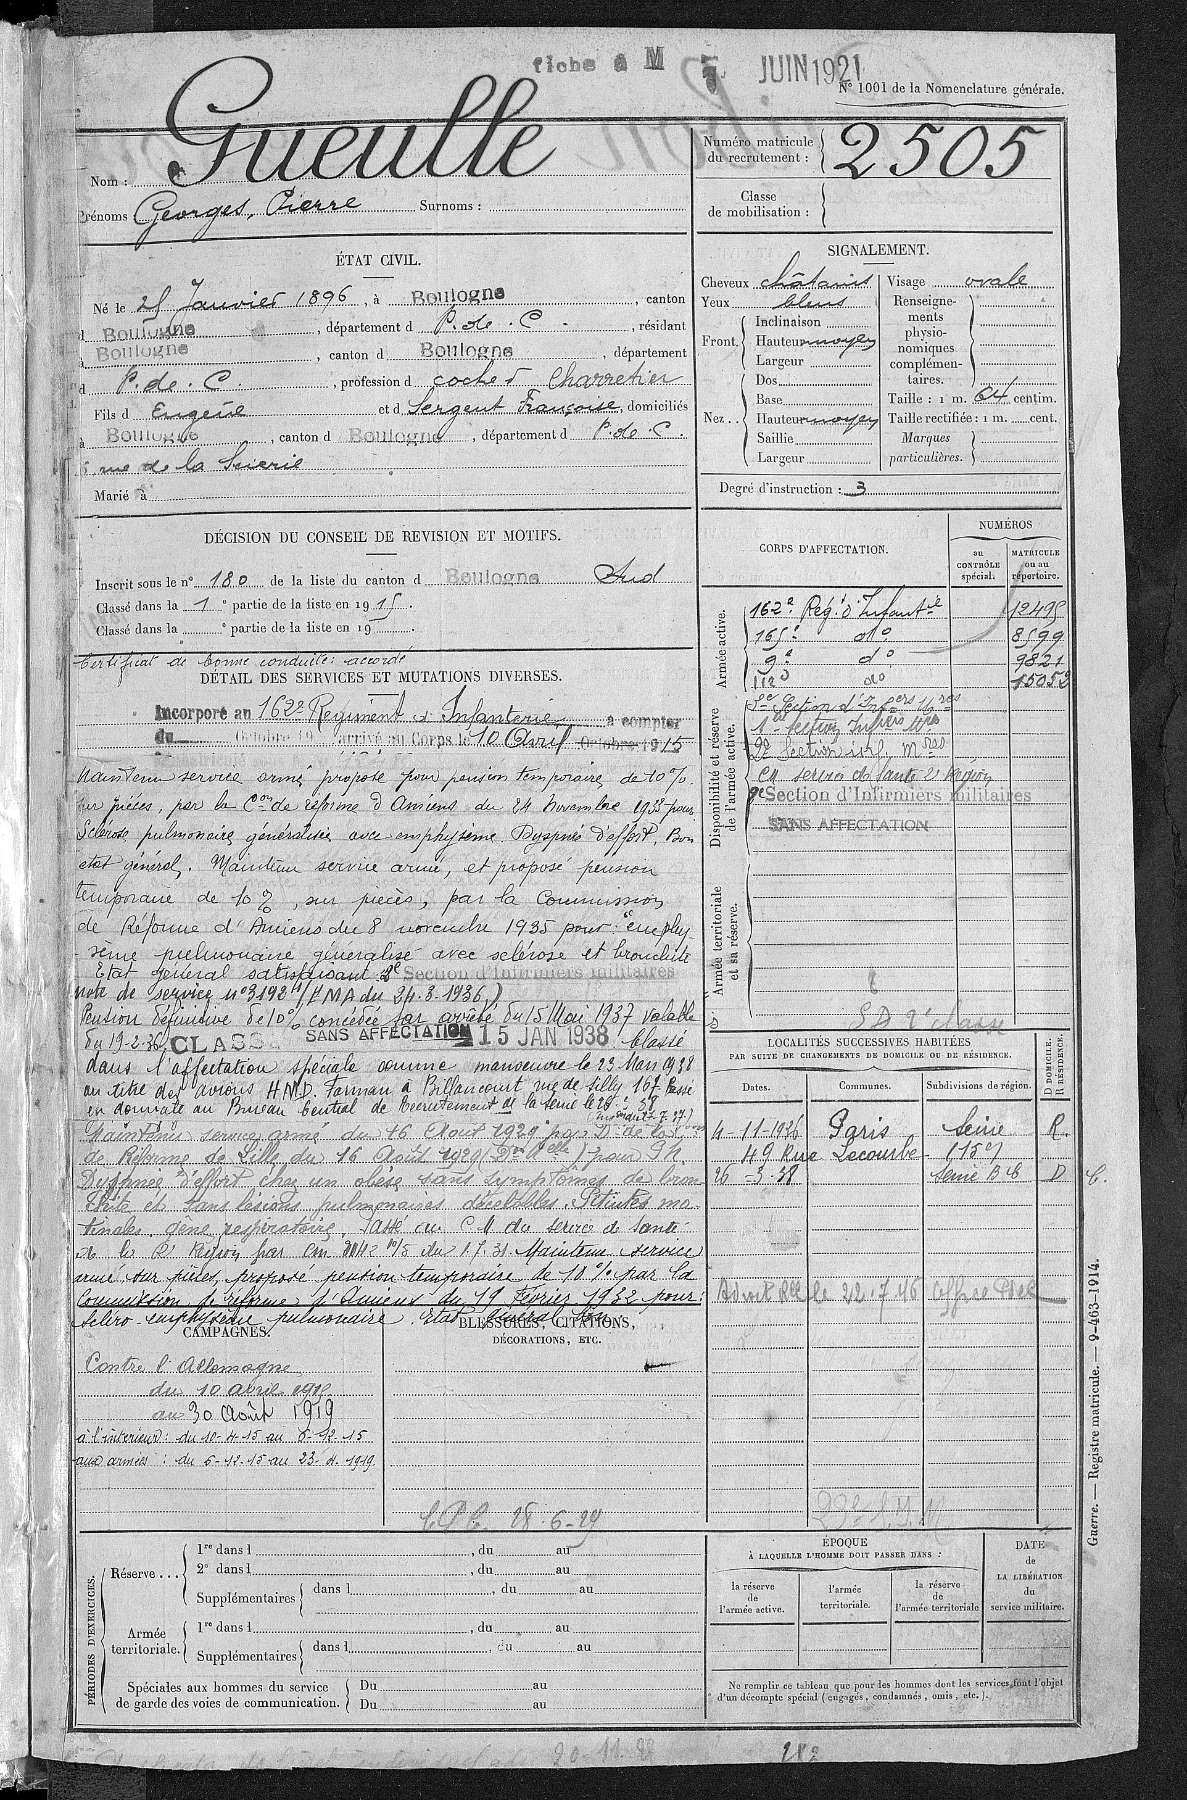 fiche à M 5 JUIN 1921
N° 1001 de la Nomenclature générale.
Nom : Gueulle
Prénoms Georges, Pierre Surnoms :
Numéro matricule
du recrutement : 2505
Classe
de mobilisation :
ÉTAT CIVIL.
Né le 25 Janvier 1896, à Boulogne, canton
d Boulogne, département d P. de. C., résidant
à Boulogne, canton d Boulogne, département
d P. de. C., profession d cocher Charretier
Fils d Eugène et d Sergent Françoise, domiciliés
à Boulogne, canton d Boulogne, département d P. de C.
rue de la
Marié à
SIGNALEMENT.
Cheveux châtains
Yeux bleus
Front. Inclinaison
Hauteur moyen
Largeur
Nez.. Dos
Base
Hauteur moyen
Saillie
Largeur
Visage ovale
Renseigne-
ments
physio-
nomiques
complémen-
taires.
Taille : 1 m. 64 centim.
Taille rectifiée : 1 m. cent.
Marques
particulières.
Degré d'instruction : 3
DÉCISION DU CONSEIL DE REVISION ET MOTIFS.
Inscrit sous le n° 180 de la liste du canton d Boulogne Sud
Classé dans la 1e partie de la liste en 1915.
Classé dans la e partie de la liste en 19
Certificat de bonne conduite : accordé
DÉTAIL DES SERVICES ET MUTATIONS DIVERSES.
Incorporé au 162e Régiment d'Infanterie à compter
du Octobre 19 arrivé au Corps le 10 Avril Octobre 1915
Maintenu service armé proposé pour pension temporaire de 10%
sur pièces, par la Con de réforme d'Amiens du 24 Novembre 1933 pour
Sclérose pulmonaire généralisée avec emphysème. Dyspnée d'effort. Bon
état général. Maintenu service armé, et proposé pension
temporaire de 10 %, sur pièces, par la Commission
de Réforme d'Amiens du 8 novembre 1935 pour "emphy-
sème pulmonaire généralisé avec sclérose et bronchite
Etat général satisfaisant 2e Section d'Infirmiers militaires
note de service n° 3192 /EMA du 24.3.1936
Pension définitive de 10% concédée par arrêté du 15 Mai 1937 valable
du 19-2-36 CLASSÉ SANS AFFECTATION 15 JAN 1938 Classé
dans l'affectation spéciale comme manoeuvre le 23 Mars 1938
au titre des avions H.M.D. Farman à Billancourt rue de Silly 167 Passé
en domicile au Bureau Central de Recrutement de la Seine le 26.3.38
Maintenu service armé du 16 Août 1929 par Don de la Con
de Réforme de Lille du 16 Août 1929 pour
Dyspnée d'effort chez un obèse sans symptômes de bron-
chite et sans lésions pulmonaires décelables. Pituites ma-
tinales, gêne respiratoire. Passé au C.M du Service de Santé
de la 2e Région par du 1.7.31. Maintenu service
armé sur pièces, proposé pension temporaire de 10% par la
Commission de réforme d'Amiens du 19 Février 1932 pour :
Scléro-emphysème pulmonaire. Etat général bon
CORPS D'AFFECTATION.
NUMÉROS
au
CONTRÔLE
spécial.
MATRICULE
ou au
répertoire.
Armée active.
162e Rég. d'Infantie 12495
165e do 8599
9e do 9821
112e do 15052
Disponibilité et réserve
de l'armée active.
Section d'Infers Mres
1re Section Infers Mres
2e Section Mres
CM service de Santé 2e Région
2e Section d'Infirmiers militaires
SANS AFFECTATION
Armée territoriale
et sa réserve.
LOCALITÉS SUCCESSIVES HABITÉES
PAR SUITE DE CHANGEMENTS DE DOMICILE OU DE RÉSIDENCE.
Dates.
Communes.
Subdivisions de région.
D DOMICILE.
R RÉSIDENCE.
4-11-1936 Paris Seine R.
49 Rue Lecourbe (15e)
26-3-38 Seine B C D C.
le 22.7.46
CAMPAGNES.
Contre l'Allemagne
du 10 avril 1915
au 30 Août 1919
à l'intérieur : du 10-4-15 au 5-12-15
aux armées : du 6-12-15 au 23.4.1919
BLESSURES, CITATIONS,
DÉCORATIONS, ETC.
28-6-29
PÉRIODES D'EXERCICES.
Réserve...
1re dans l , du au
2e dans l , du au
Supplémentaires dans l , du au
Armée
territoriale.
1re dans l , du au
Supplémentaires dans l du au
Spéciales aux hommes du service
de garde des voies de communication.
Du au
Du au
ÉPOQUE
À LAQUELLE L'HOMME DOIT PASSER DANS :
la réserve
de
l'armée active.
l'armée
territoriale.
la réserve
de
l'armée territoriale
DATE
de
LA LIBÉRATION
du
service militaire.
Ne remplir ce tableau que pour les hommes dont les services font l'objet
d'un décompte spécial (engagés, condamnés, omis, etc.).
Guerre. — Registre matricule. — 9-463-1914.
20.11.28
282